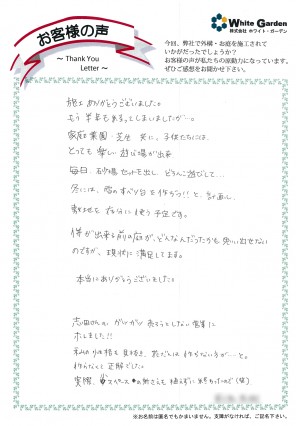 お客様の声
~ Thank You
Letter ~
White Garden
株式会社 ホワイト・ガーデン
今回、弊社で外構・お庭を施工されて
いかがだったでしょうか？
お客様の声が私たちの原動力になっています。
ぜひご感想をお聞かせ下さい。
施工ありがとうございました。
もう半年もあっとしてしまいましたが…。
家庭菜園・芝生 共に、子供たちには、
とっても楽しい遊び場が出来
毎日、砂場セットを出し、どろんこ遊びして…
冬には、雪のすべり台を作ろう!! と、計画し、
敷地を 存分に使う予定です。
体が出来る前の庭が、どんなんだったかも 思い出せない
のですが、現状に満足してます。
本当にありがとうございました。
志田さんの がつがつ 売ろうとしない 営業に
ホレました!!
私の性格を見抜き、花だんは 作らない方が…と。
作らなくて正解でした
実際、
スペースの
さえも 植えずに 冬
なので（笑）
※お名前は匿名でもかまいません。支障がなければ、ご記名下さい。